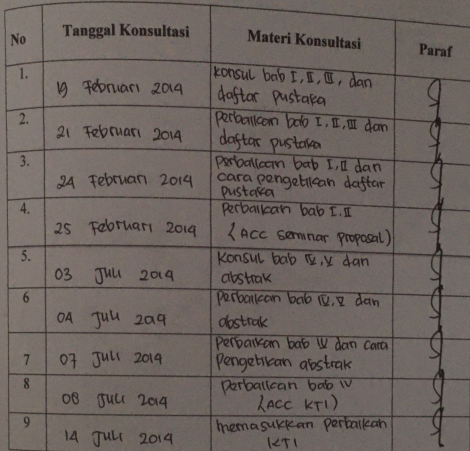 No Tanggal Konsultasi Materi Konsultasi Paraf
1. 19 Februari 2014 konsul bab I, II, III, dan
daftar pustaka
2. 21 Februari 2014 Perbaikan bab I, II, III dan
daftar pustaka
3. 24 Februari 2014 Perbaikan bab I, II dan
cara pengetikan daftar
pustaka
4. 25 Februari 2014 Perbaikan bab I, II
(ACC seminar proposal)
5. 03 Juli 2014 Konsul bab IV, V dan
abstrak
6 04 Juli 2019 Perbaikan bab IV, V dan
abstrak
7 07 Juli 2014 Perbaikan bab IV dan cara
Pengetikan abstrak
8 08 Juli 2014 Perbaikan bab IV
(ACC KTI)
9 14 Juli 2014 memasukkan perbaikan
KTI